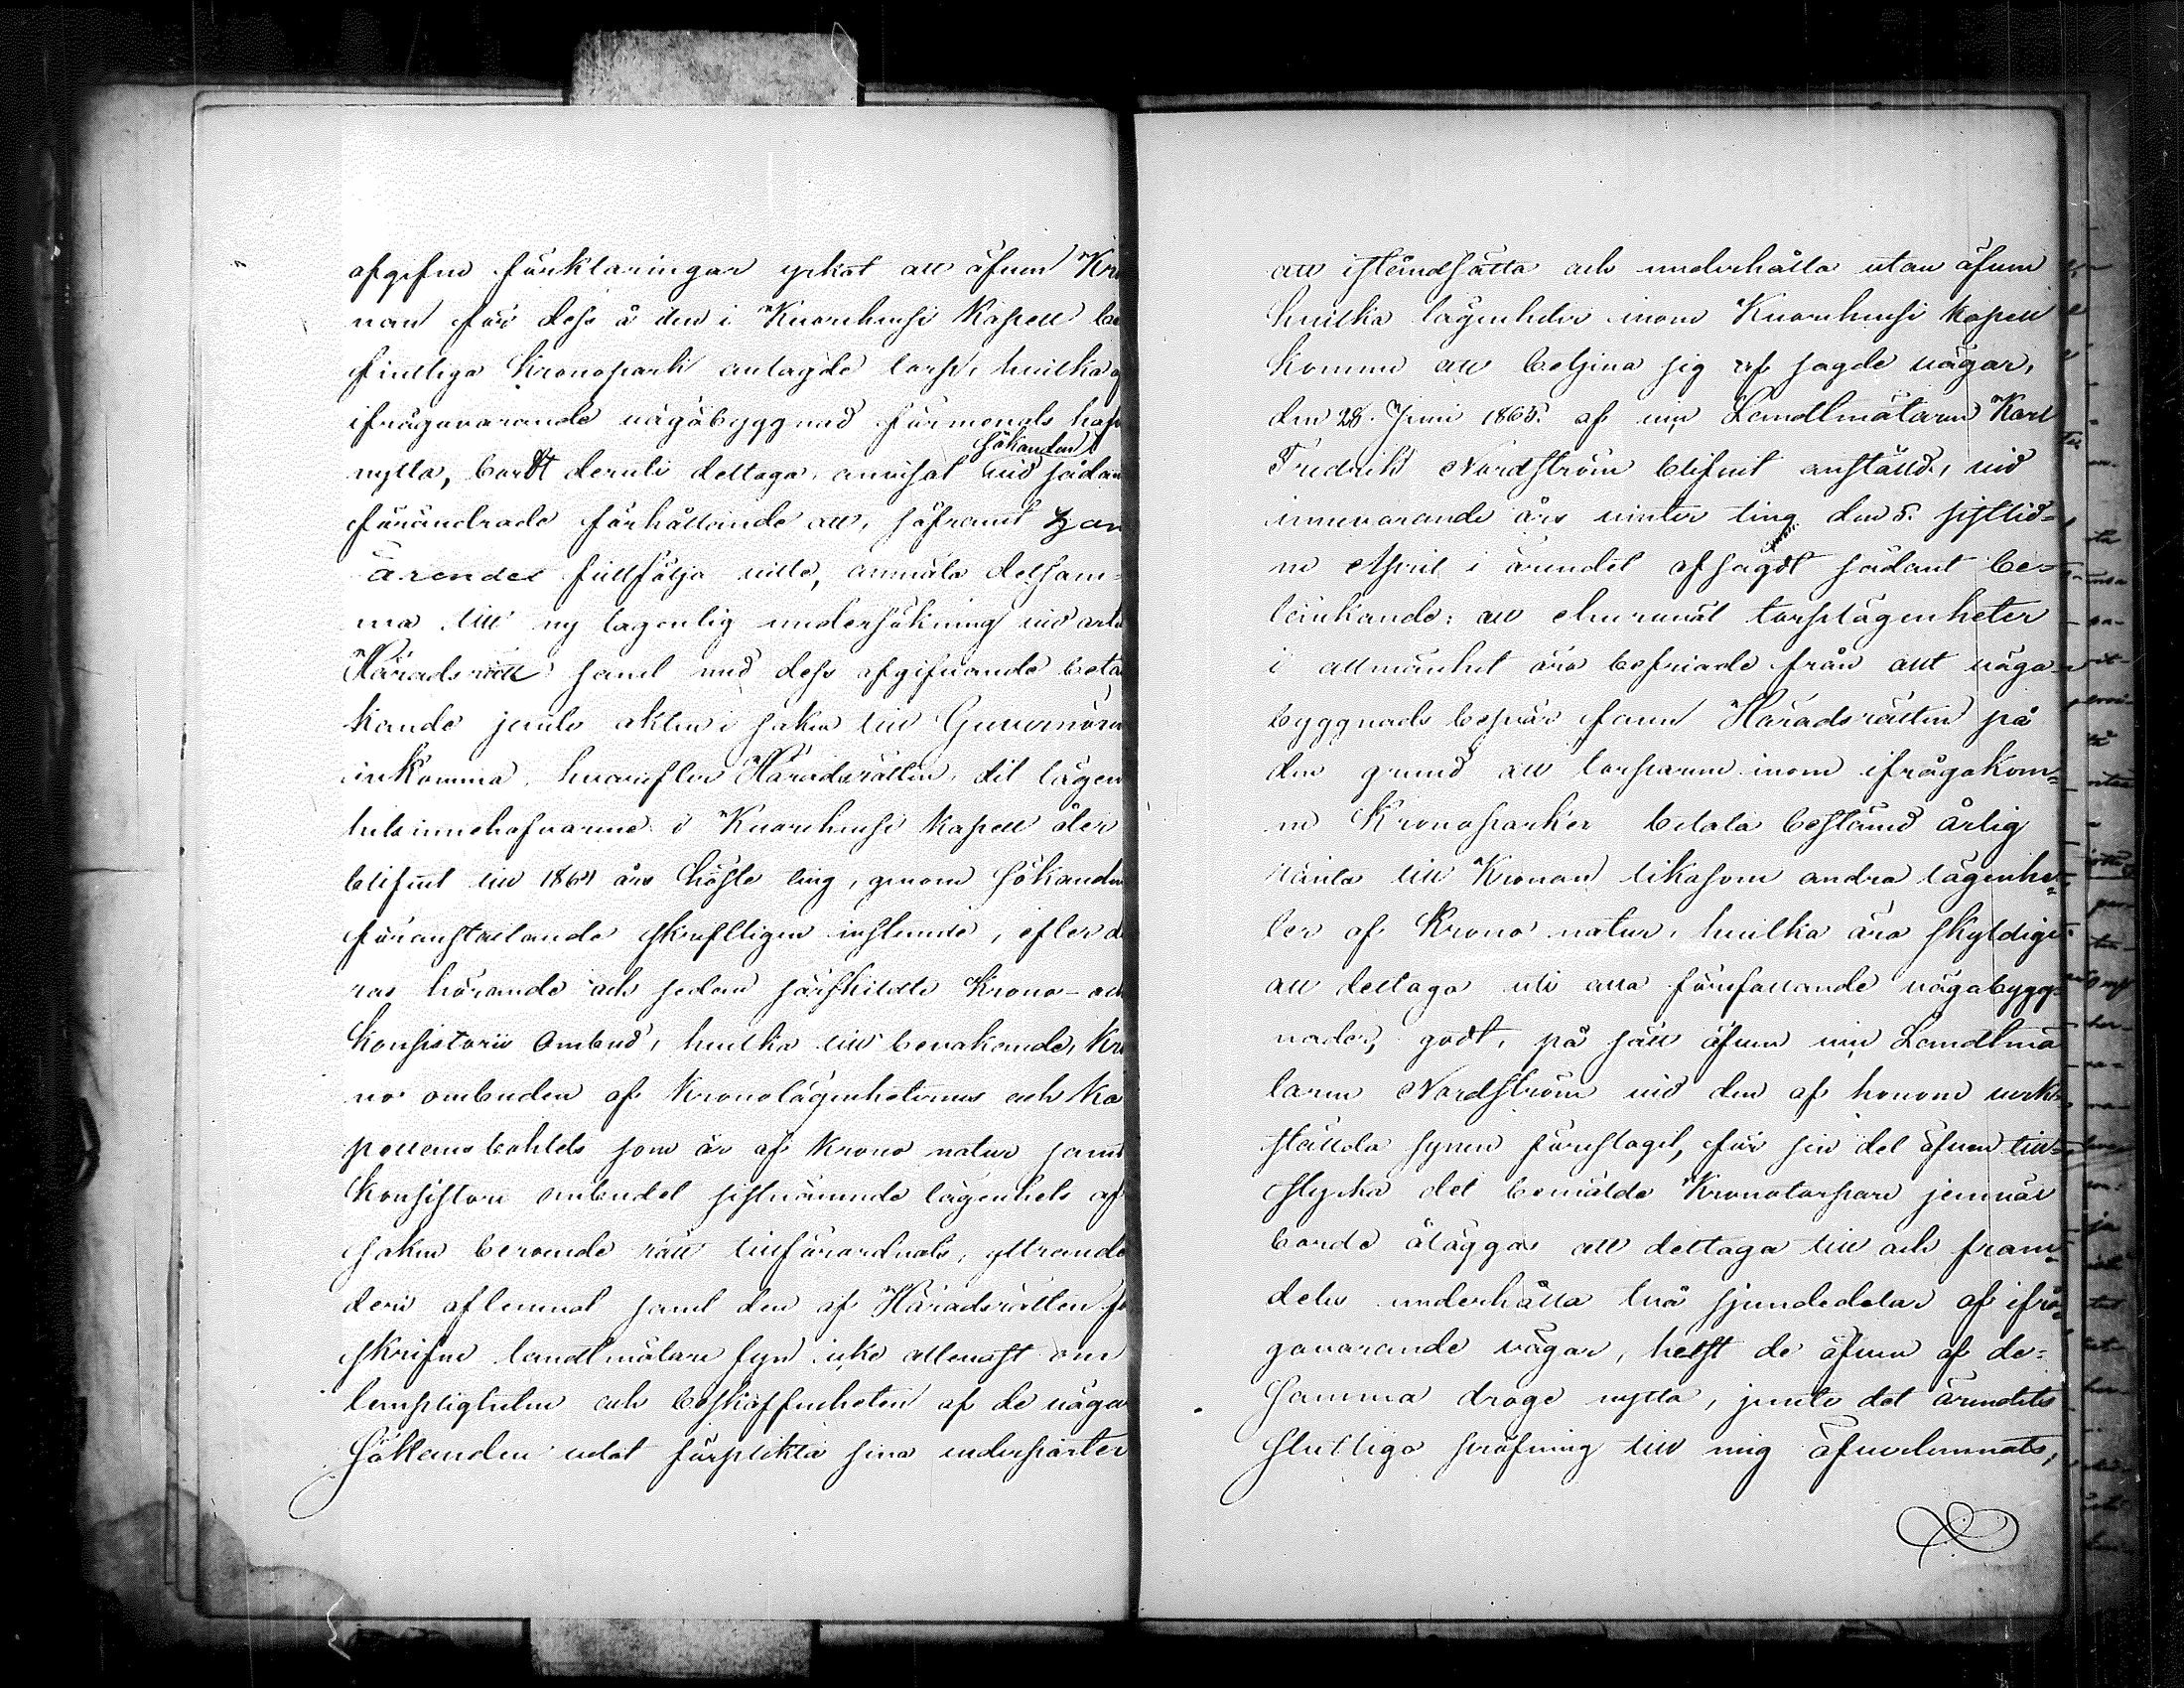 afgifne förklaringar yrkat att äfven Kro
nan för dess å den i Kuorehvesi Kapell be
fintliga Kronopark anlagde torp, hvilka af
ifrågavarande vägabyggnad förmenats hafva
Sökanden
nytta, bordt deruti deltaga, anvisat vid sådan
förändrade förhållande att, såframt han
ärendet fullfölja ville, anmäla detsam-
ma till ny lagenlig undersökning vid
Häradsrätt samt med dess afgifvande betän
kande jemte akten i saken till Guvernören
inkomma, hvarefter Häradsrätten, dit lägen
hetsinnehafvarene i Kuorehvesi Kapell åter
blifvit till 1864 års höste ting, genom Sökanden
föranstaltande skriftligen instemde, efter de
ras hörande och sedan särskildte Krono- och
Konsistorii Ombud, hvilka till bevakande, Kro
no ombuden af Kronolägenheternes och Ka
pellansbohlets som är af Krono natur samt
Konsistorii ombudet sistnämnde lägenhets af
saken beroende rätt tillförordnats, yttrande
deri aflemnat samt den af Häradsrätten fö
skrifne landtmätare syn icke allenast om
lempligheten och beskaffenheten af de vägar
Sökanden velat förplikta sina vederparter
att iståndsätta och underhålla utan äfven
hvilka lägenheter inom Kuorehvesi Kapell
komme att betjena sig af sagde vägar,
den 28. Juni 1865. af v. Landtmätaren Karl
Fredrik Nordström blifvit anställd, vid
innevarande års vinter ting den 5. sistlid-
ne April i ärendet afsagdt sådant be-
tänkande: att ehuruväl torplägenheter
i allmänhet äro befriade från allt väga-
byggnads besvär fann Häradsrätten på
den grund att torparene inom ifrågakom-
ne Kronoparker betala bestämd årlig
ränta till Kronan likasom andra lägenhe-
ter af Krono natur, hvilka äro skyldige
att deltaga uti alla förefallande vägabygg-
nader, godt, på sätt äfven v. Landtmä
taren Nordström vid den af honom verk-
ställda synen föreslagit, för sin del äfven till-
styrka det bemälde Kronotorpare jemväl
borde åläggas att deltaga till och fram-
deles underhålla två sjundedelar af ifrå-
gavarande vägar, helst de äfven af de-
samma droge nytta, jemte det ärendets
slutliga pröfning till mig öfverlemnats,